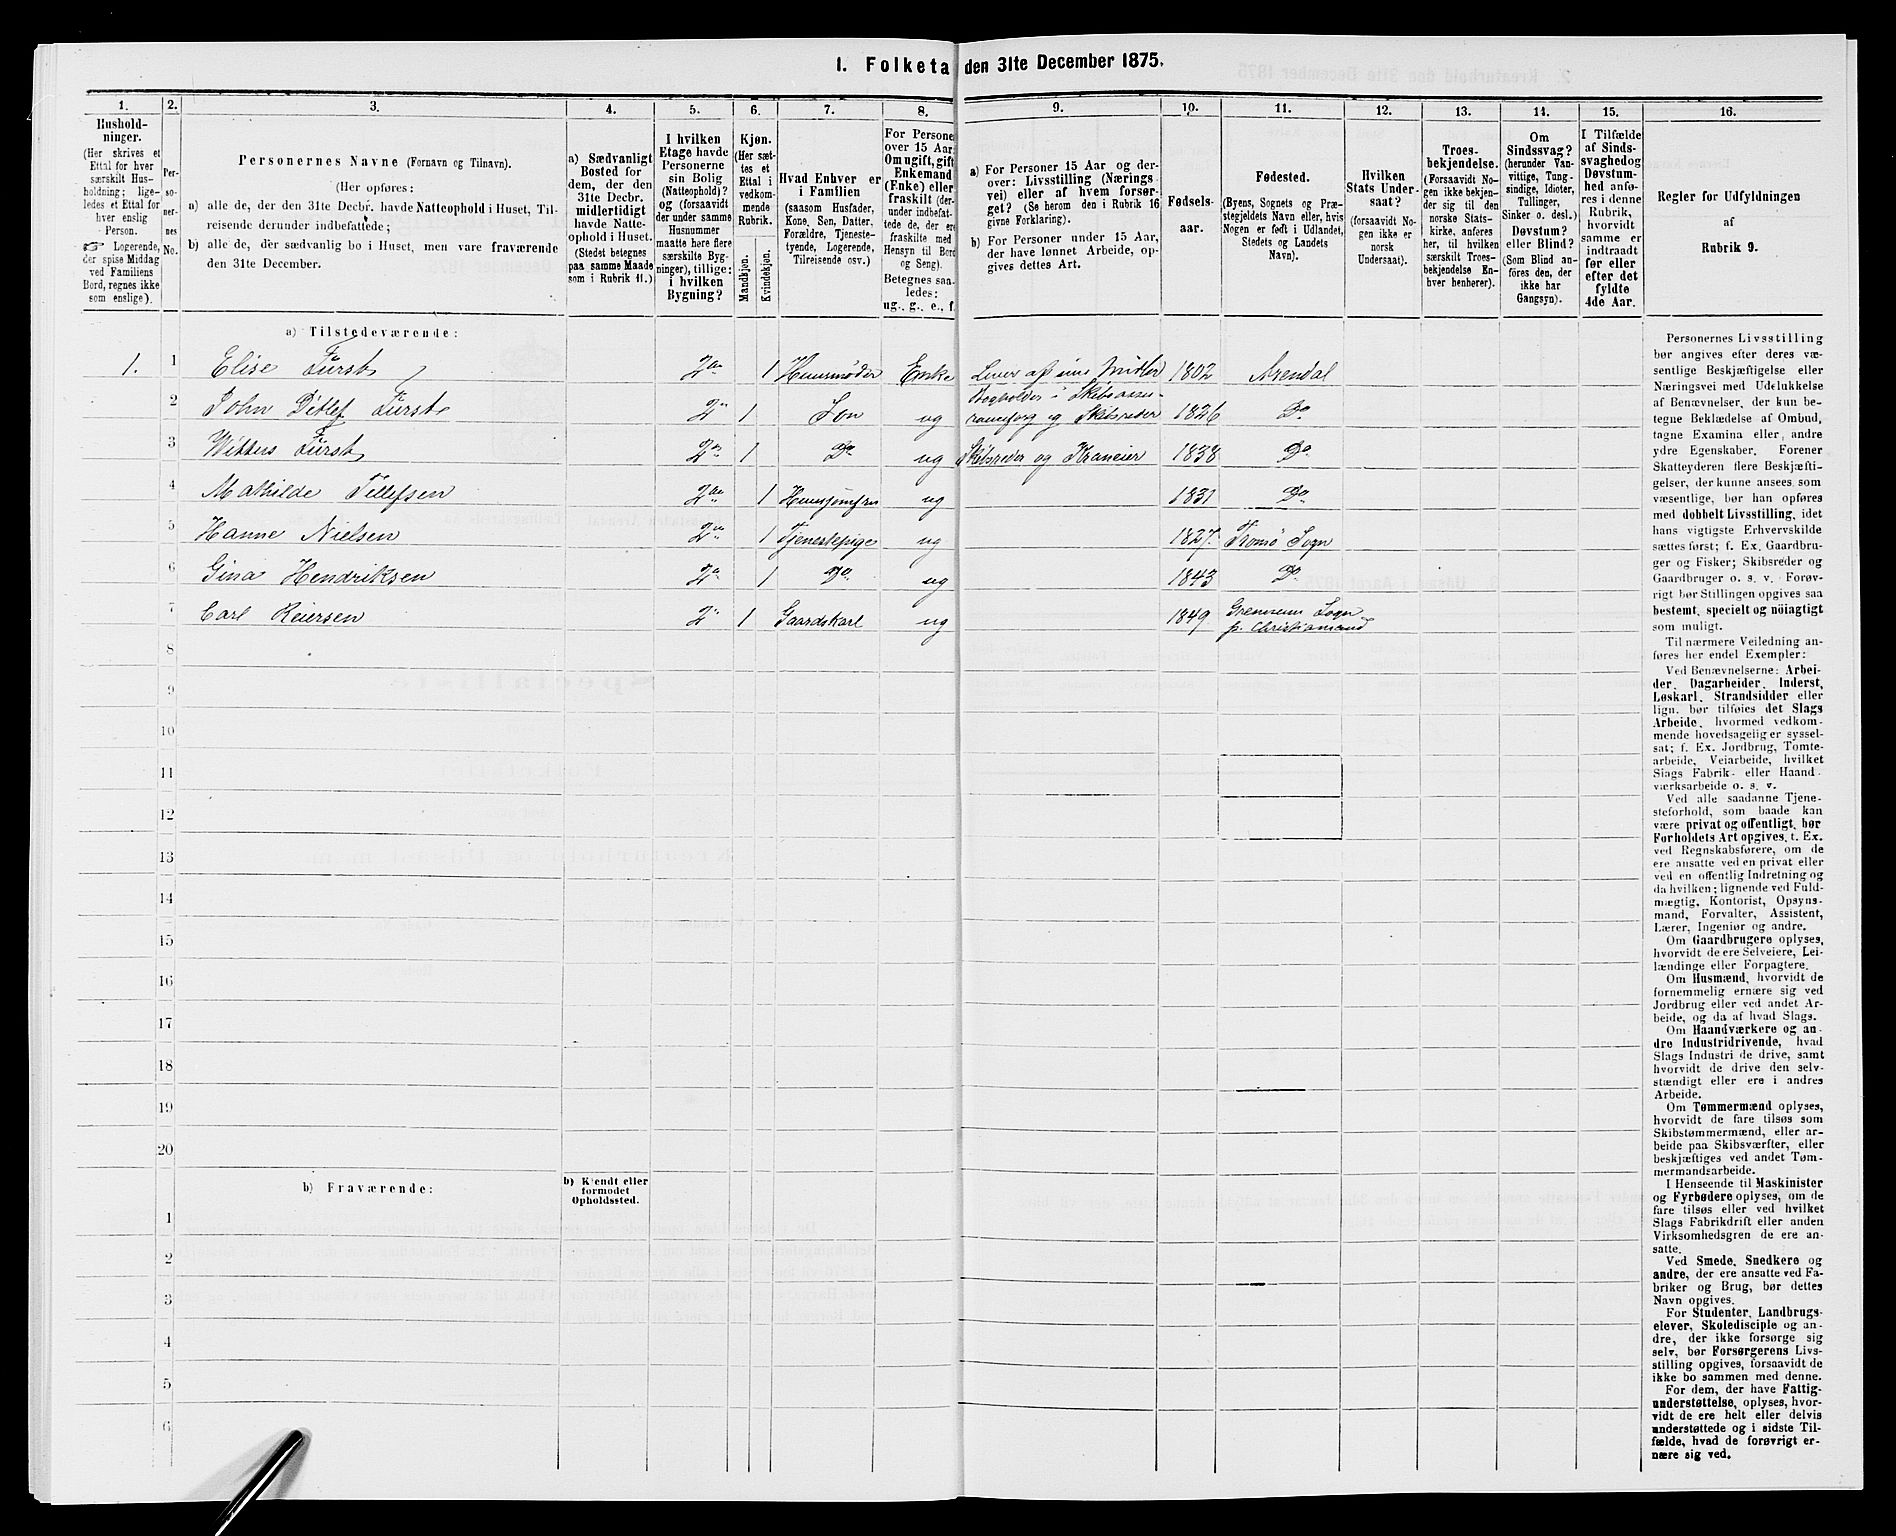 1. Folketa den 31te December 1875.
1. 2. 3. 4. 5. 6. 7. 8. 9. 10. 11. 12. 13. 14. 15. 16.
Hushold-
ninger.
(Her skrives et
Ettal for hver
særskilt Hus-
holdning; lige-
ledes et Ettal for
hver enslig
Person.
☞ Logerende,
der spise Middag
ved Familiens
Bord, regnes ikke
som enslige).
Per-
so-
ner-
nes
No.
Personernes Navne (Fornavn og Tilnavn).
(Her opføres:
a) alle de, der den 31te Decbr. havde Natteophold i Huset, Til-
reisende derunder indbefattede;
b) alle de, der sædvanlig bo i Huset, men vare fraværende
den 31te December.
a) Sædvanligt
Bosted for
dem, der den
31te Decbr.
midlertidigt
havde Natte-
ophold i Huset.
(Stedet betegnes
paa samme Maade
som i Rubrik 11.)
I hvilken
Etage havde
Personerne
sin Bolig
(Natteophold)?
og (forsaavidt
der under samme
Husnummer
maatte høre flere
særskilte Byg-
ninger), tillige:
i hvilken
Bygning?
Kjøn.
(Her sæt-
tes et
Ettal i
vedkom-
mende
Rubrik.
Mandkjøn.
Kvindekjøn.
Hvad Enhver er
i Familien
(saasom Husfader,
Kone, Søn, Datter,
Forældre, Tjeneste-
tyende, Logerende,
Tilreisende osv.)
For Persone
over 15 Aar:
Om ugift, gift
Enkemand
(Enke) eller
fraskilt (der-
under indbefat-
tede de, der ere
fraskilte med
Hensyn til Bord
og Seng).
Betegnes saa-
ledes:
ug., g., e., f.
a) For Personer 15 Aar og der-
over: Livsstilling (Nærings
vei) eller af hvem forsør-
get? (Se herom den i Rubrik 16
givne Forklaring).
b) For Personer under 15 Aar,
der have lønnet Arbeide, op-
gives dettes Art.
Fødsels-
aar.
Fødested.
(Byens, Sognets og Præ-
stegjeldets Navn eller, hvis
Nogen er født i Udlandet,
Stedets og Landets
Navn).
Hvilken
Stats Under-
saat?
(forsaavidt No-
gen ikke er
norsk
Undersaat).
Troes-
bekjendelse.
(Forsaavidt No-
gen ikke bekjen-
der sig til den
norske Stats-
kirke, anføres
her, til hvilken
særskilt Troes-
bekjendelse En-
hver henhører).
Om
Sindssvag?
(herunder Van-
vittige, Tung-
sindige, Idioter,
Tullinger,
Sinker o. desl.)
Døvstum?
eller Blind?
(Som Blind an-
føres den, der
ikke har
Gangsyn).
I Tilfælde
af Sinds-
svaghed og
Døvstum-
hed anfø-
res i denne
Rubrik,
hvorvidt
samme er
indtraadt
før eller
efter det
fyldte
4de Aar.
Regler for Udfyldningen
af
Rubrik 9.
a) Tilstedeværende:
1. 1 Elise Fürst 2 1 Huusmoder Enke Lever af sine Midler 1802 Arendal
2 John Ditlef Fürst 2 1 Søn ug Bogholder i Skibsasse-
ranceforg og Skibsreder 1826 Do
3 Wittus Fürst 2 1 Do ug Skibsreder og Kraneier 1838 Do
4 Mathilde Tellefsen 2 1 Huusjomfru ug 1831 Do
5 Hanne Nielsen 2 1 Tjenestepige ug 1827. Tromø Sogn
6 Gina Hendriksen 2 1 Do. ug 1843 Do
7 Carl Reiersen 2 1 Gaardskarl ug 1849. Sogn
p. Christiansand
8
9
10
11
12
13
14
15
16
17
18
19
20
b) Fraværende:
b) Kjendt eller
formodet
Opholdssted.
1
2
3
4
5
6
Personernes Livsstilling
bør angives efter deres væ-
sentlige Beskjæftigelse eller
Næringsvei med Udelukkelse
af Benævnelser, der kun be-
tegne Beklædelse af Ombud,
tagne Examina eller, andre
ydre Egenskaber. Forener
Skatteyderen flere Beskjæfti-
gelser, der kunne ansees som
væsentlige, bør han opføres
med dobbelt Livsstilling, idet
hans vigtigste Erhvervskilde
sættes først; f. Ex. Gaardbru-
ger og Fisker; Skibsreder og
Gaardbruger o. s. v. Forøv-
rigt bør Stillingen opgives saa
bestemt, specielt og nøiagtigt
som muligt.
Til nærmere Veiledning an-
føres her endel Exempler:
Ved Benævnelserne: Arbei-
der, Dagarbeider, Inderst,
Løskarl, Strandsidder eller
lign. bør tilføies det Slags
Arbeide, hvormed vedkom-
mende hovedsagelig er syssel-
sat; f. Ex. Jordbrug, Tomte-
arbeide, Veiarbeide, hvilket
Slags Fabrik- eller Haand-
værksarbeide o. s. v.
Ved alle saadanne Tjene-
steforhold, som baade kan
være privat og offentligt, bør
Forholdets Art opgives, t. Ex.
ved Regnskabsførere, om de
ere ansatte ved en privat eller
ved en offentlig Indretning og
da hvilken; lignende ved Fuld-
mægtig, Kontorist, Opsyns-
mand, Forvalter, Assistent,
Lærer, Ingeniør og andre.
Om Gaardbrugere oplyses,
hvorvidt de ere Selveiere, Lei-
lændinge eller Forpagtere.
Om Husmænd, hvorvidt de
fornemmelig ernære sig ved
Jordbrug eller ved andet Ar-
beide, og da af hvad Slags.
Om Haandværkere og an-
dre Industridrivende, hvad
Slags Industri de drive, samt
hvorvidt de drive den selv-
stændigt eller ere i andres
Arbeide.
Om Tømmermænd oplyses,
hvorvidt de fare tilsøs som
Skibstømmermænd, eller ar-
beide paa Skibsværfter, eller
beskjæftiges ved andet Tøm-
mermandsarbeide.
I Henseende til Maskinister
og Fyrbødere oplyses, om de
fare tilsøs eller ved hvilket
Slags Fabrikdrift eller anden
Virksomhedsgren de ere an-
satte.
Ved Smede, Snedkere og
andre, der ere ansatte ved Fa-
briker og Brug, bør dettes
Navn opgives.
For Studenter, Landbrugs-
elever, Skoledisciple og an-
dre, der ikke forsørge sig
selv, bør Forsørgerens Livs-
stilling opgives, forsaavidt de
ikke bo sammen med denne.
For dem, der have Fattig-
understøttelse, oplyses, hvor-
vidt de ere helt eller delvis
understøttede og i sidste Til-
fælde, hvad de forøvrigt er-
nære sig ved.